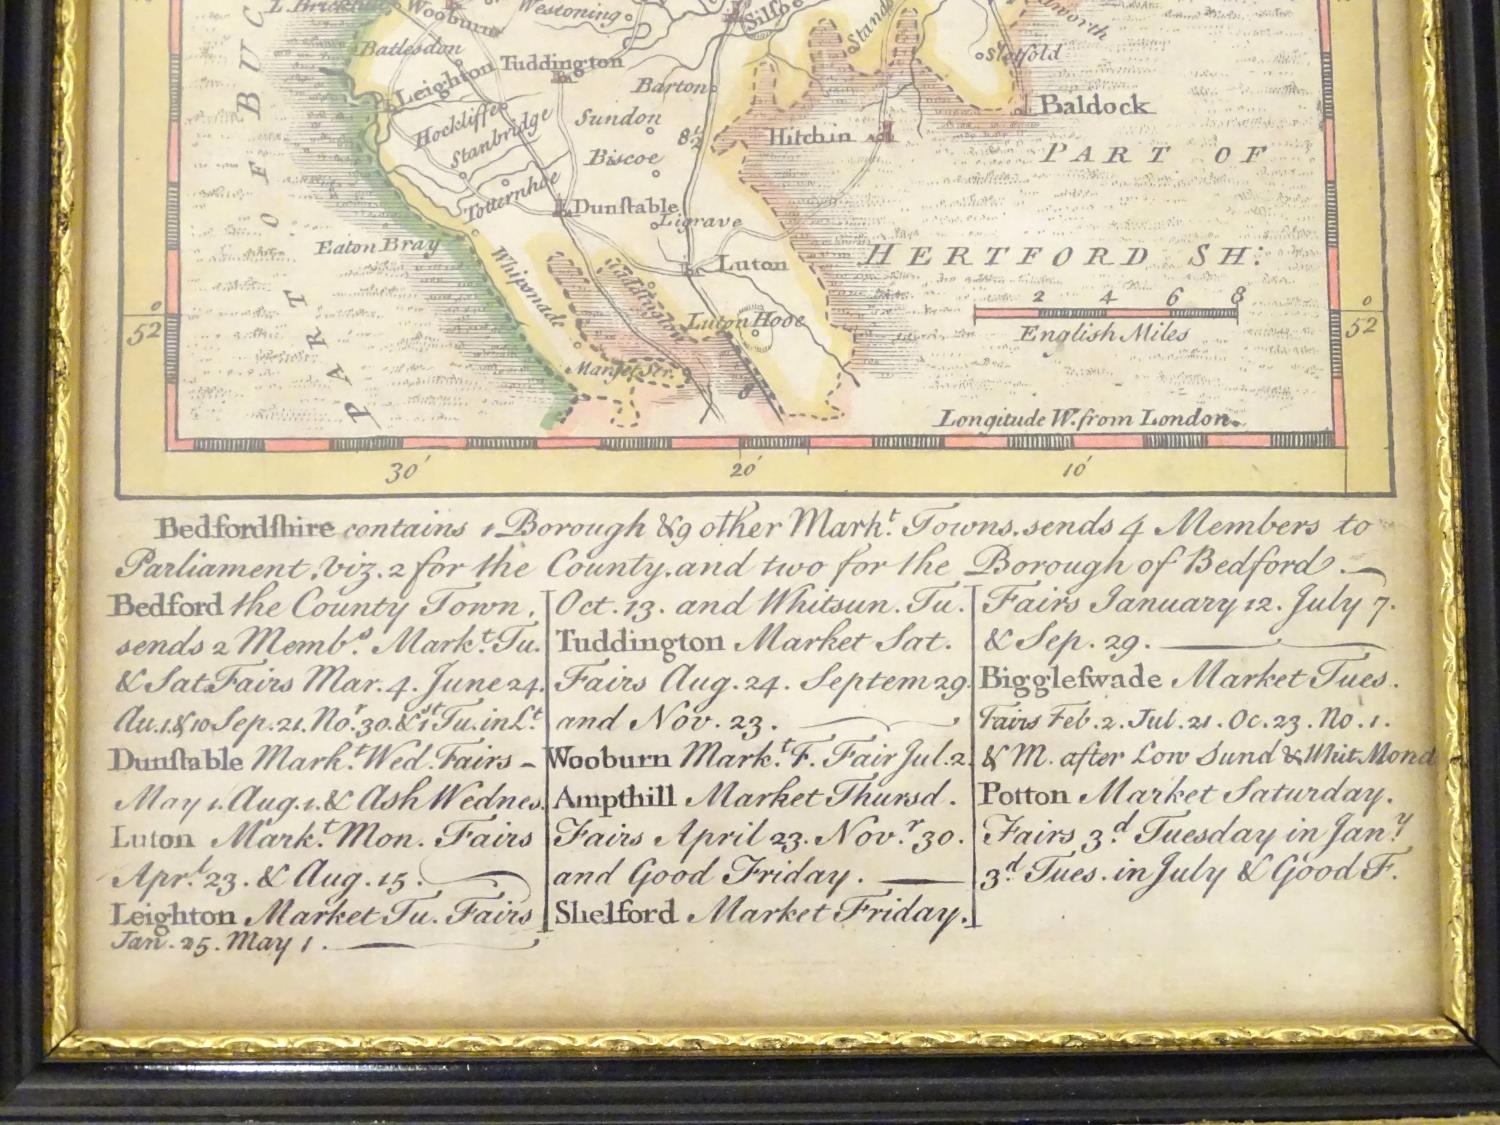 L. Brickhill
Wooburn
Westoning
Silsoe
Batlesdon
Leighton
Tuddington
Barton
Slotfold
Baldock
Hockliffe
Stanbridge
Sundon
8½
Hitchin
Biscoe
PART OF
Totternhoe
Dunſtable
Ligrave
Eaton Bray
Luton
HERTFORD SH:
Whipsnade
Luddington
Luton Hooe
2 4 6 8
English Miles
PART OF BUC
0
52
0
52
Market Str.
Longitude W. from London.
30'
20'
10'
Bedfordſhire contains 1 Borough & 9 other Markt. Towns. sends 4 Members to
Parliament, viz. 2 for the County, and two for the Borough of Bedford.
Bedford the County Town,
sends 2 Membs. Markt. Tu.
& Sat. Fairs Mar. 4. June 24.
Au. 1. & 10 Sep. 21. Nor. 30. & 1st Tu. in Lt
Dunſtable Markt. Wed. Fairs –
May 1. Aug. 1. & Ash Wednes.
Luton Markt. Mon. Fairs
Aprl. 23. & Aug. 15.
Leighton Market Tu. Fairs
Jan. 25. May 1.
Oct. 13. and Whitsun. Tu.
Tuddington Market Sat.
Fairs Aug. 24. Septem 29.
and Nov. 23.
Wooburn Markt. F. Fair Jul. 2.
Ampthill Market Thursd.
Fairs April 23. Novr. 30.
and Good Friday.
Shelford Market Friday.
Fairs January 12. July 7.
& Sep. 29.
Biggleſwade Market Tues.
Fairs Feb. 2. Jul. 21. Oc. 23. No. 1.
& M. after Low Sund & Whit Mond
Potton Market Saturday.
Fairs 3d. Tuesday in Jany
3d. Tues. in July & Good F.